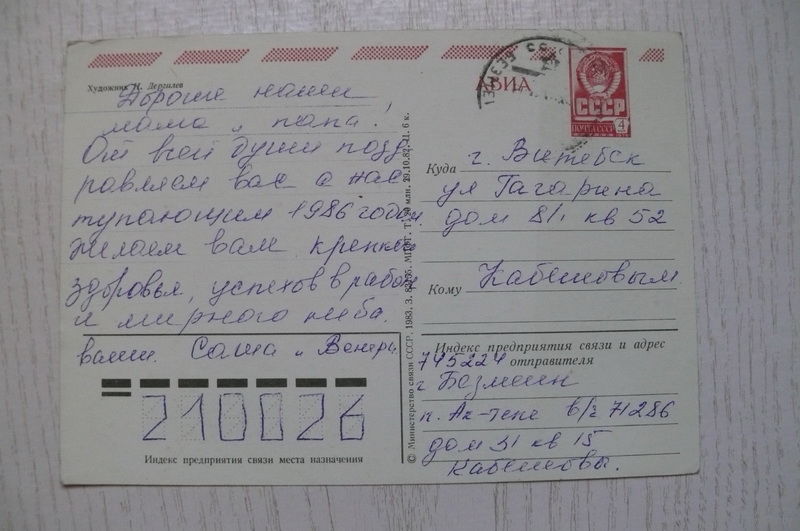 Художник Н. Дергилев
Дорогие наши
мама и папа!
От всей души позд
равляем вас с нас
тупающим 1986 годом
желаем вам крепкого
здоровья, успехов в работе
и мирного неба.
ваши. Саша и Венера
210026
Индекс предприятия связи места назначения
© Министерство связи СССР. 1983. З.
АВИА
СССР
ПОЧТА СССР 4
Куда г. Витебск
ул Гагарина
дом 8/1 кв 52
Кому
Индекс предприятия связи и адрес
отправителя
745224
г Безмеин
п. Ак-тепе в/г 71286
дом 31 кв 15